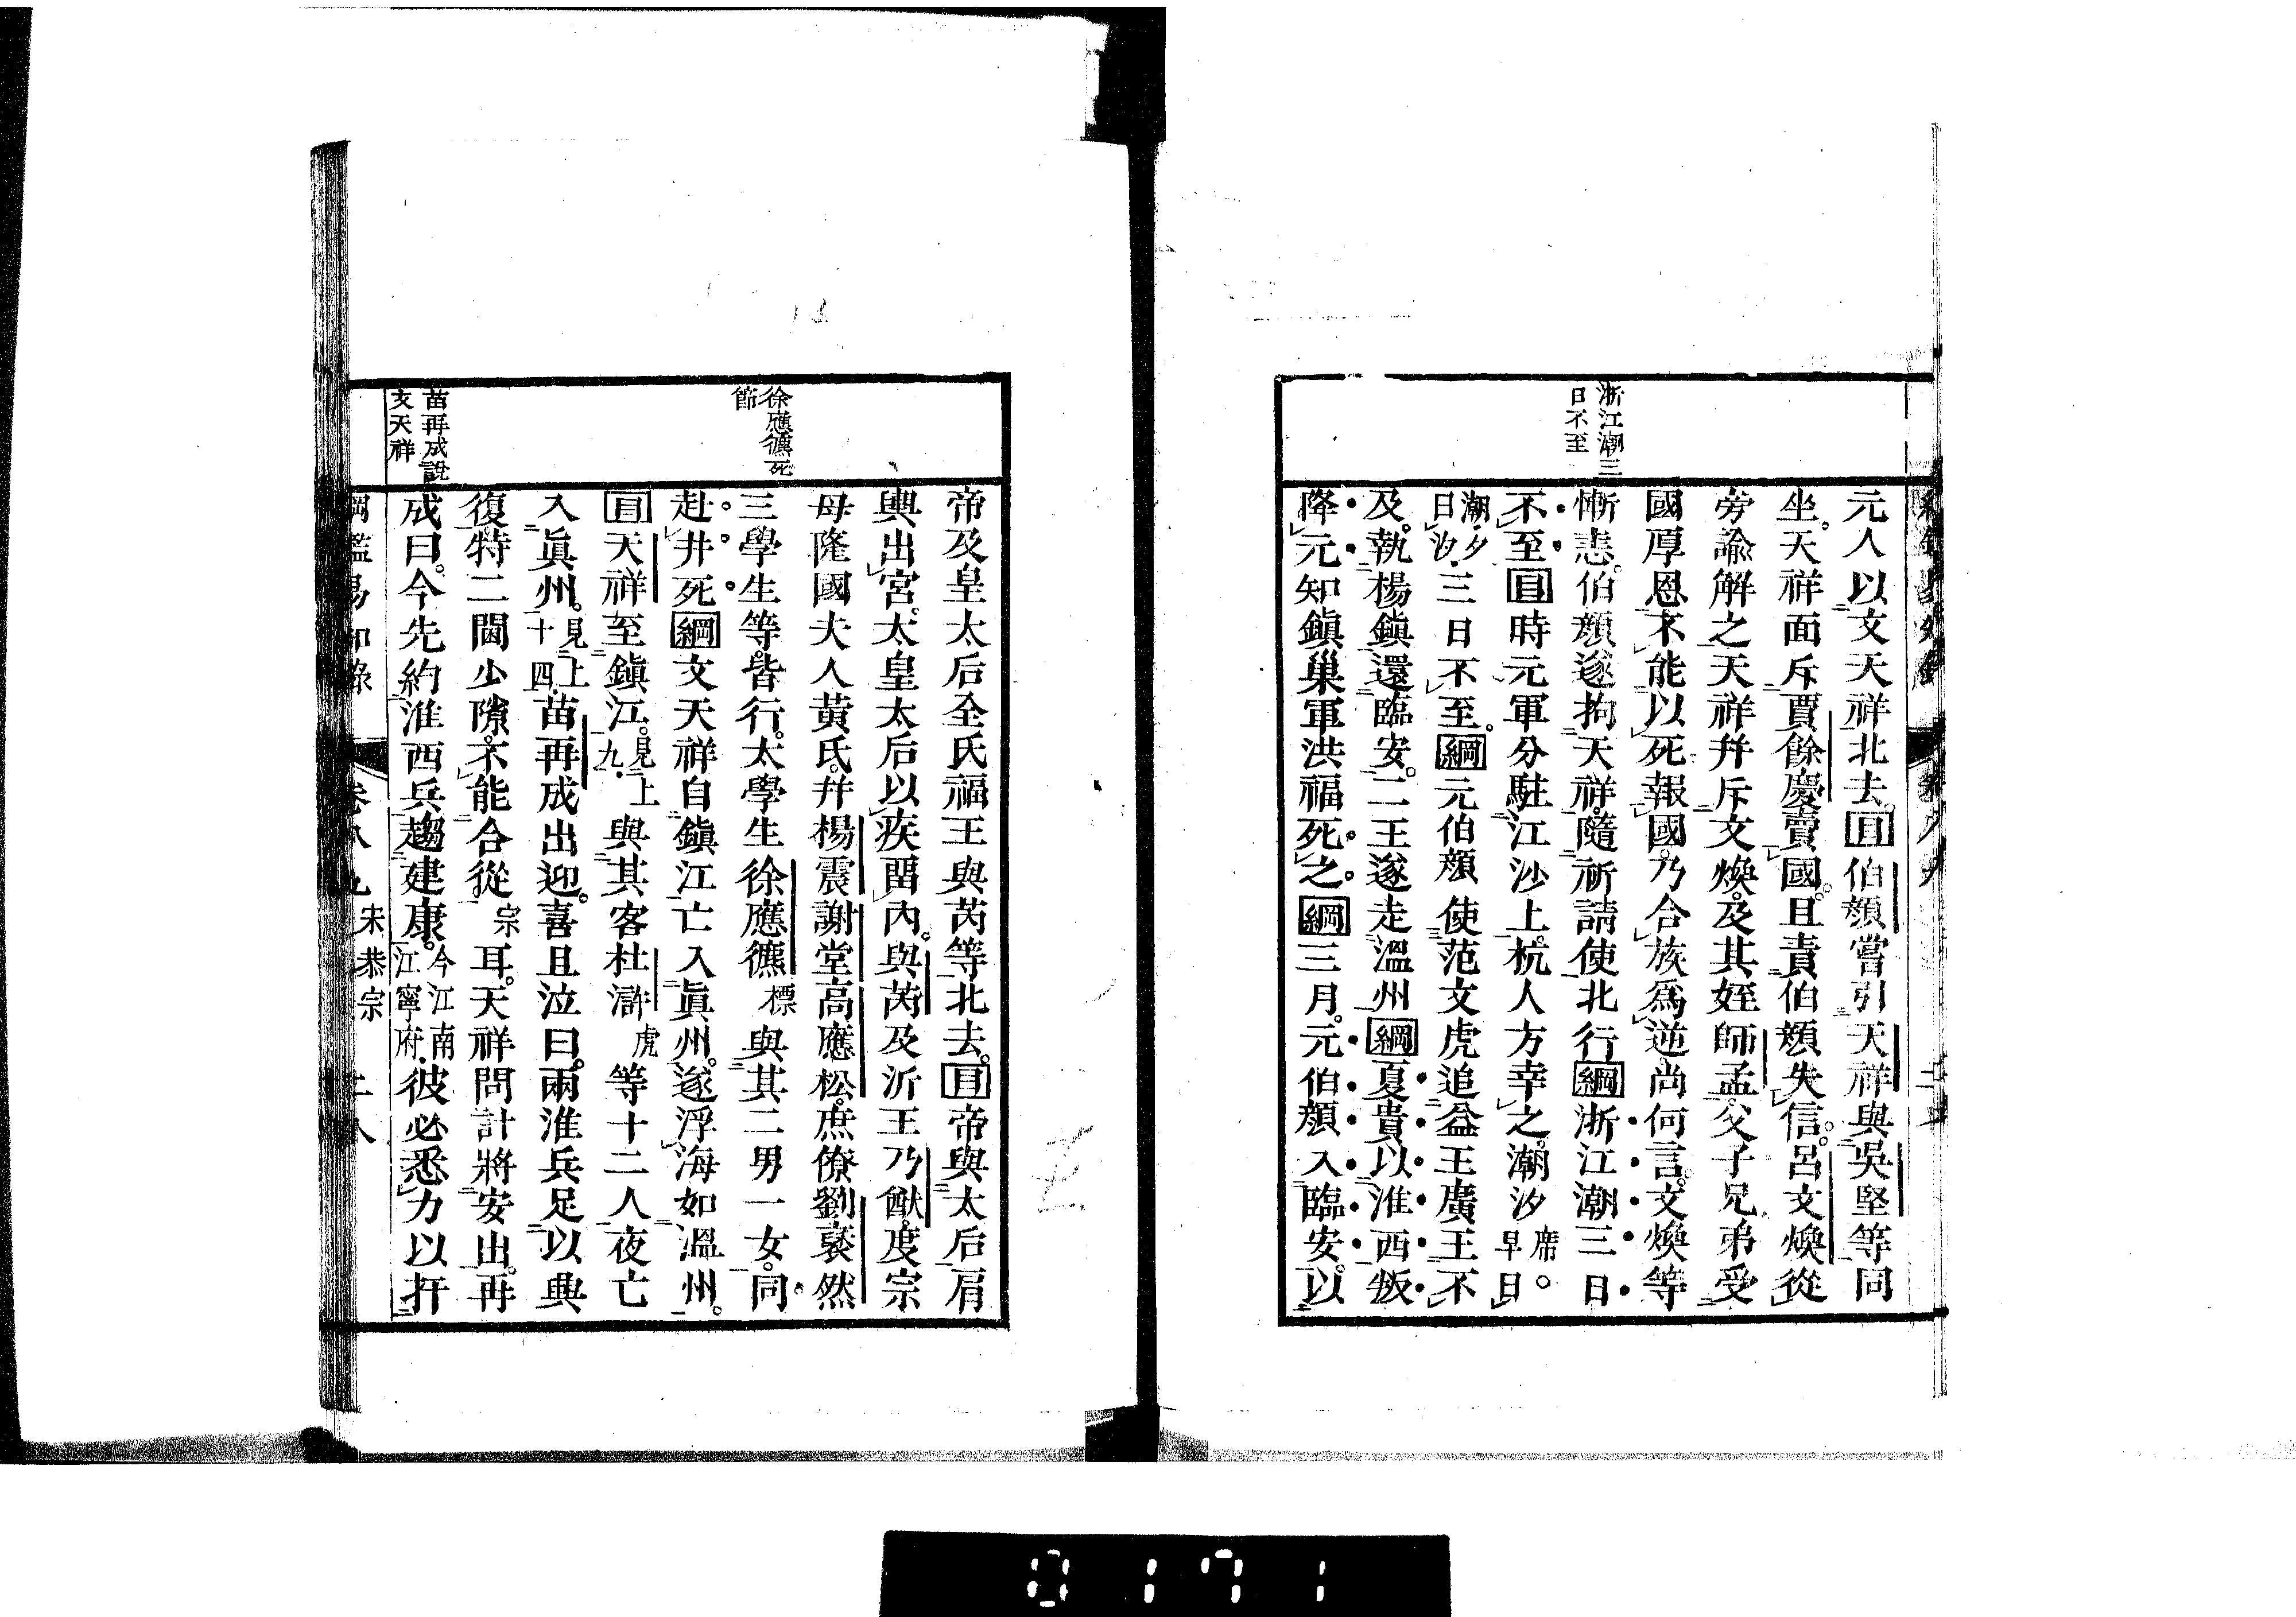 浙江潮三
日不至
元人以文天祥北去。目伯顏嘗引天祥與吳堅等同
坐。天祥面斥賈餘慶賣國。且責伯顏失信。呂文煥從
旁諭解之天祥幷斥文煥。及其姪師孟。父子兄弟受
國厚恩不能以死報國。乃合族爲逆尚何言。文煥等
慚恚。伯顏遂拘天祥。隨祈請使北行綱浙江潮三日
不至目時元軍分駐江沙上。杭人方幸之。潮汐席。早日
潮・夕日汐・三日不至。綱元伯顏使范文虎追益王廣王不
及。執楊鎭還臨安。二王遂走溫州綱夏貴以淮西叛
降元知鎭巢軍洪福死之。綱三月。元伯顏入臨安。以
徐應鑣死
節
苗再成說
文天祥
帝及皇太后全氏福王與芮等北去。目帝與太后肩
輿出宮。太皇太后以疾畱內。與芮及沂王乃猷。度宗
母隆國夫人黃氏。幷楊震謝堂高應松。庶僚劉裒然
三學生等。皆行。太學生徐應鑣標與其二男一女。同
赴井死綱文天祥自鎭江亡入眞州。遂浮海如溫州。
目天祥至鎭江。見上九・與其客杜滸虎等十二人夜亡
入眞州。見上十四・苗再成出迎。喜且泣曰。兩淮兵足以興
復。特二閫少隙。不能合從宗耳。天祥問計將安出。再
成曰。今先約淮西兵趨建康。今江南江寧府・彼必悉力以扞
綱鑑易知錄 卷八九 宋恭宗 二八